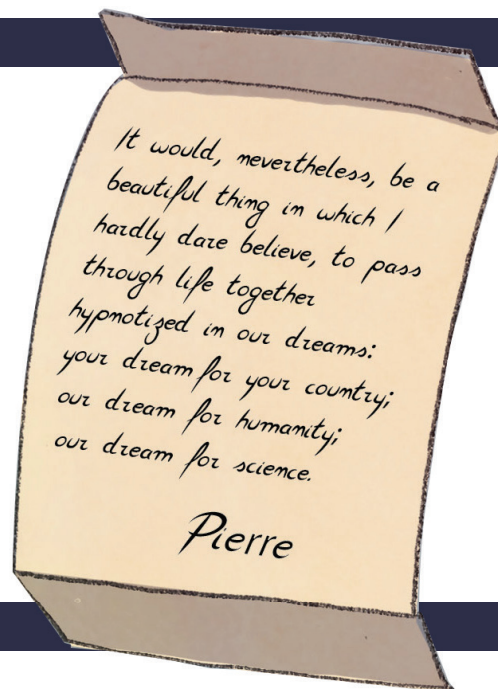 It would, nevertheless, be a
beautiful thing in which I
hardly dare believe, to pass
through life together
hypnotized in our dreams:
your dream for your country;
our dream for humanity;
our dream for science.
Pierre